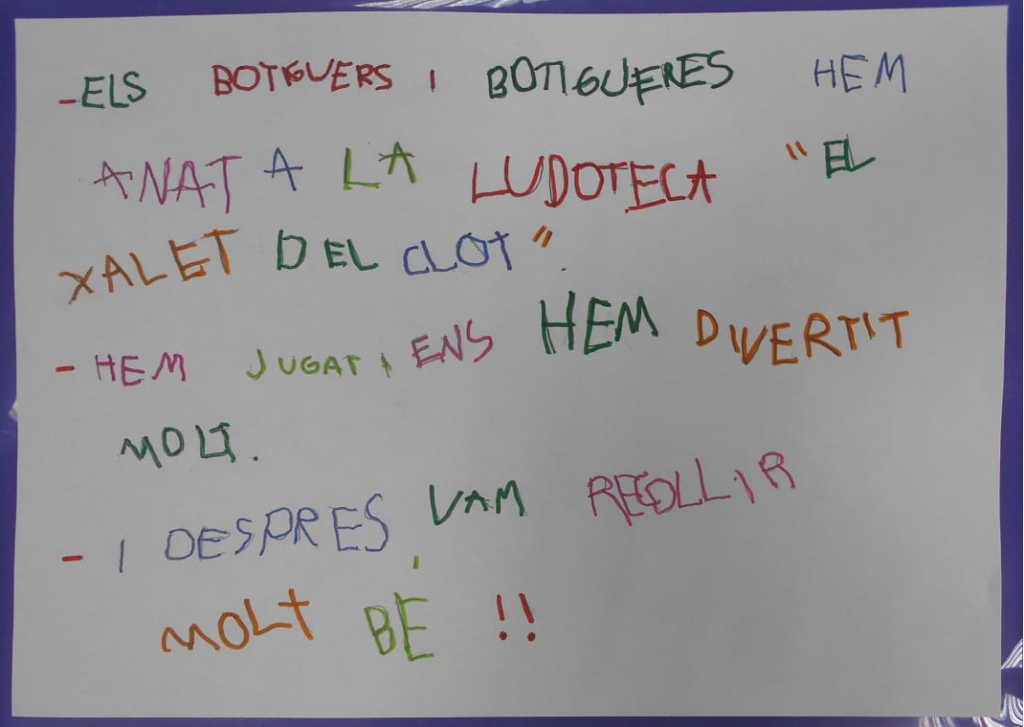 -ELS BOTIGUERS I BOTIGUERES HEM
ANAT A LA LUDOTECA "EL
XALET DEL CLOT".
- HEM JUGAT I ENS HEM DIVERTIT
MOLT.
- I DESPRES VAM RECOLLIR
MOLT BÉ !!